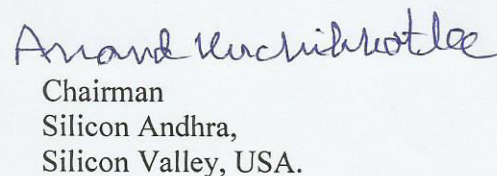 Anand Kuchibhotla
Chairman
Silicon Andhra,
Silicon Valley, USA.